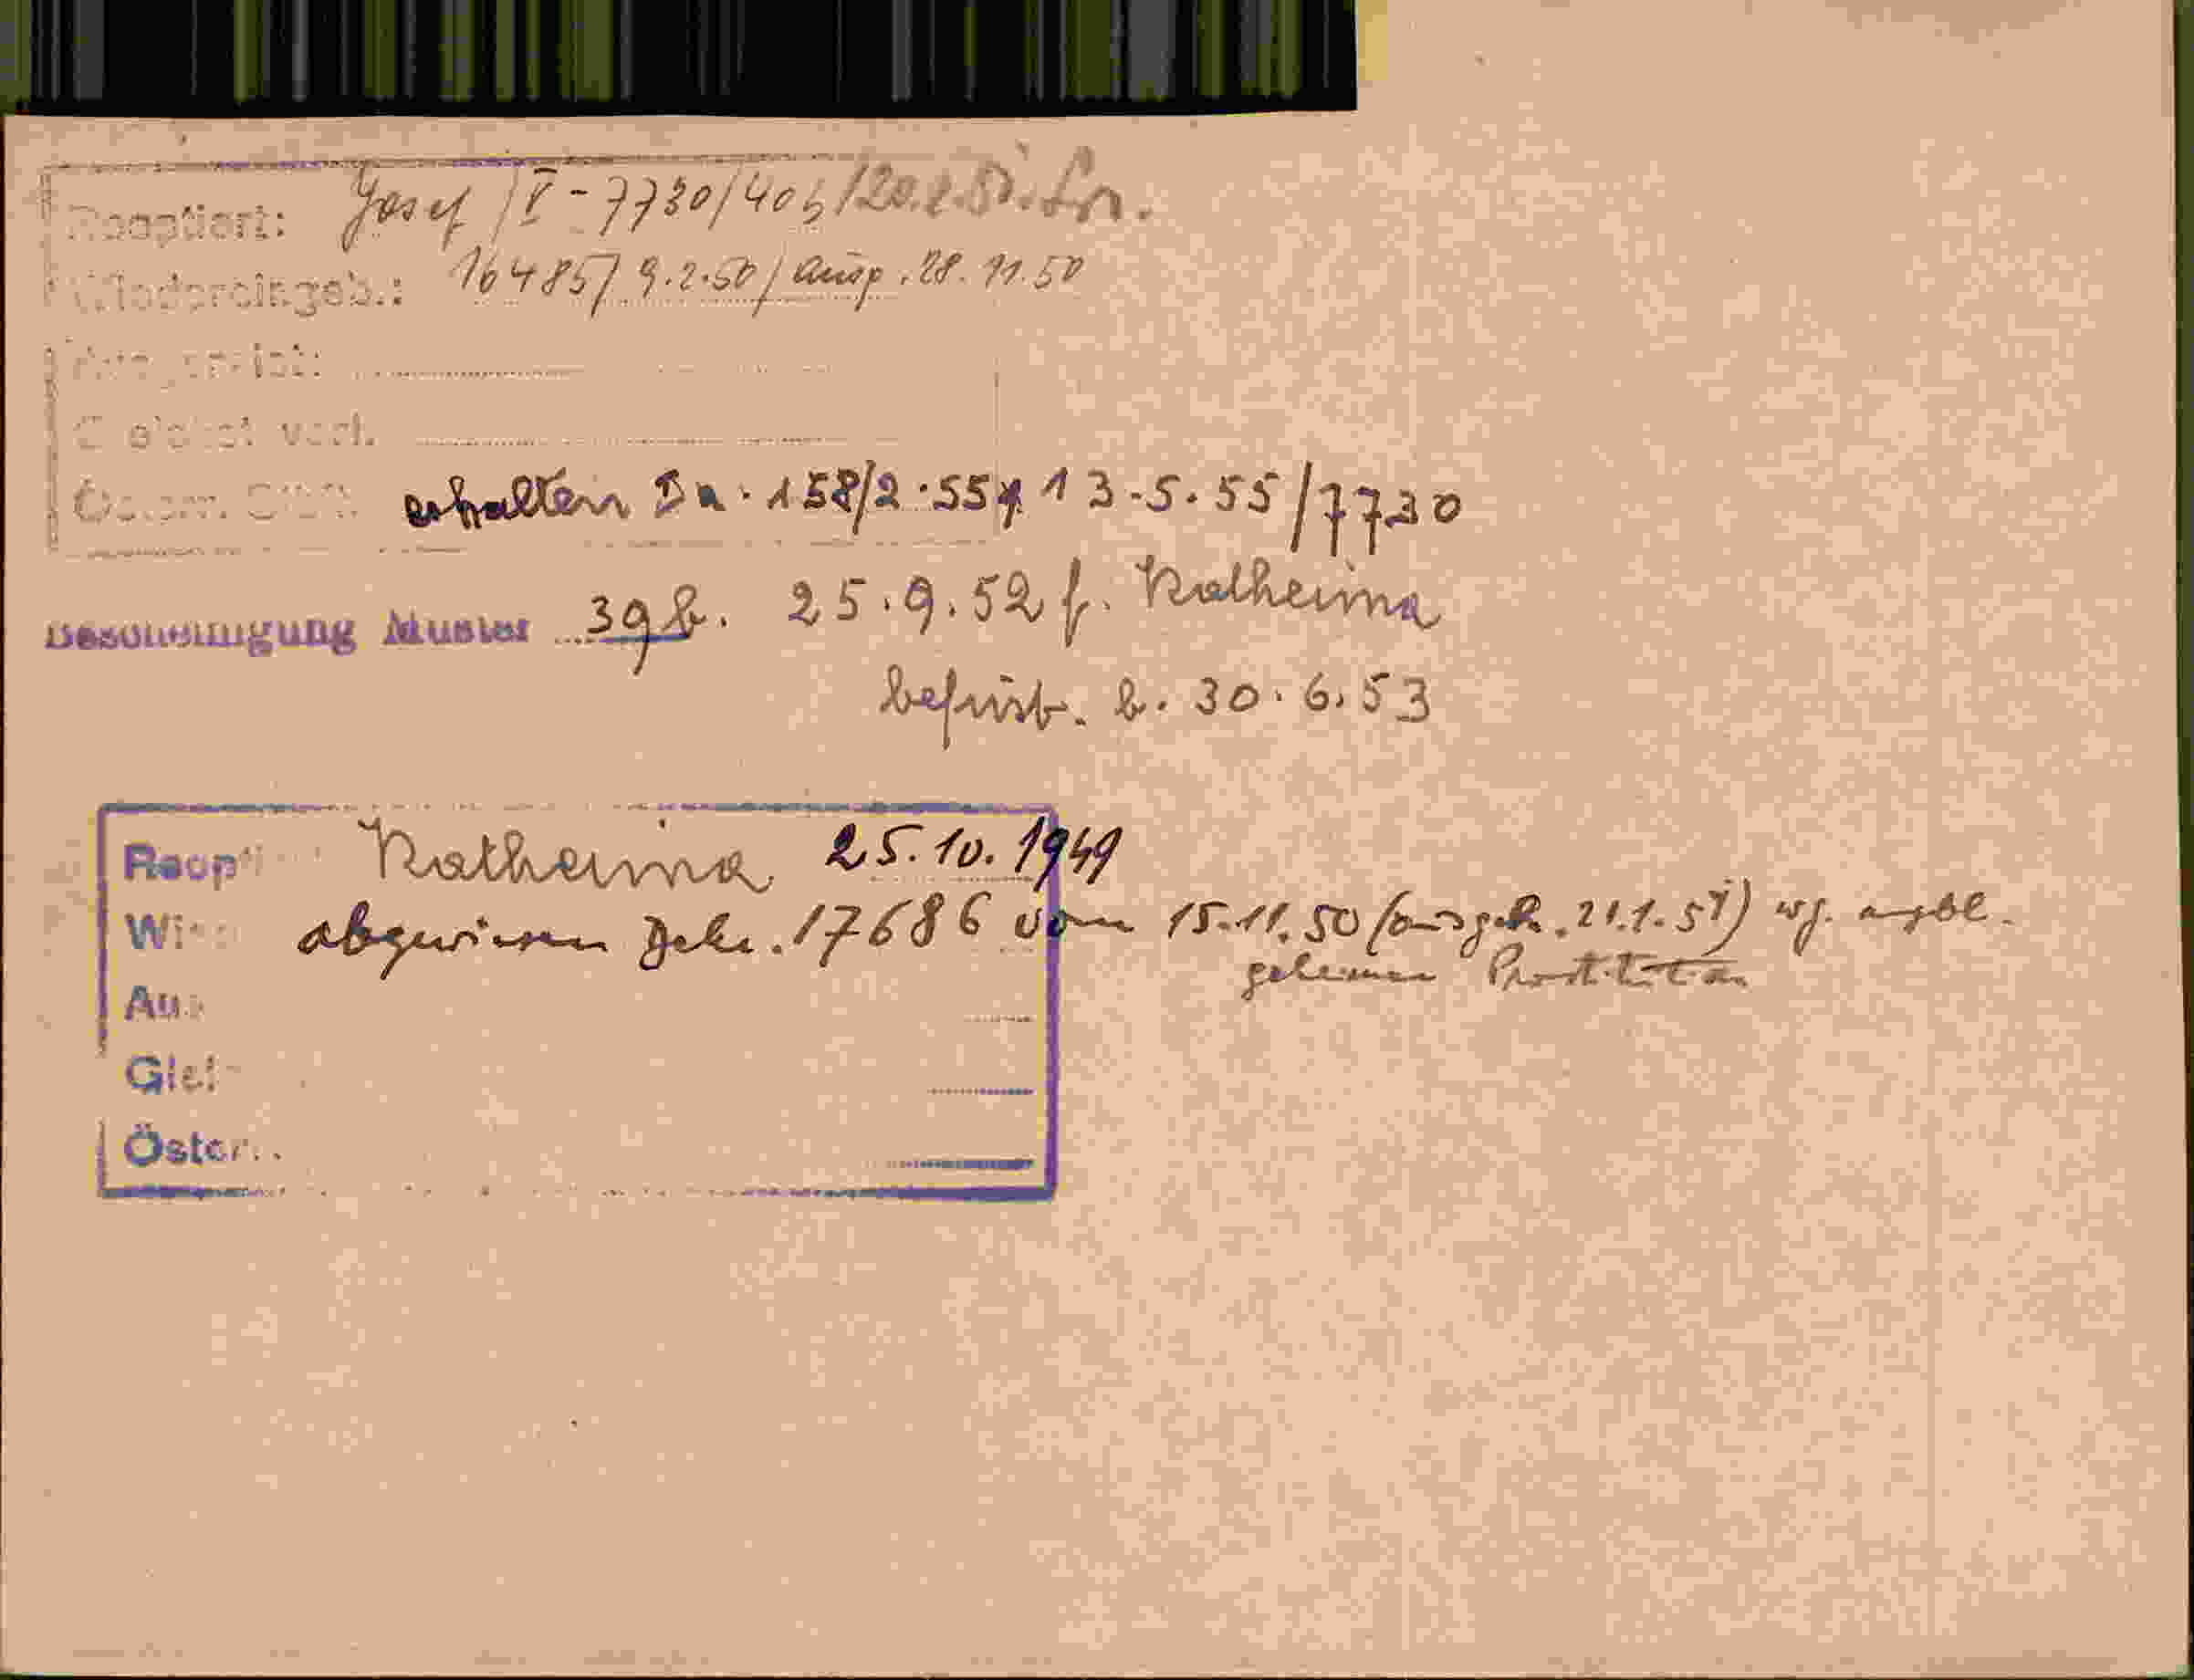 Reoptiert: Josef / V - 7730/405/20.2.51. Ln.
Wiedereingeb.: 16485/ 9.2.50/ ausg. 28.11.50
Österr. erhalten Da. 158/2.55 13.5.55/7730
Bescheinigung Muster 39 b. 25.9.52 f. Katharina
befrist. b. 30.6.53
Reopti Katharina 25.10.1949
Wi abgewiesen Dekr. 17686 vom 15.11.50 (ausgeh. 21.1.51) wg. angbl.
geheimer Prostitution
Aus
Glei
Österr.